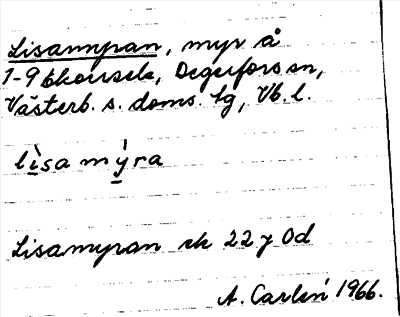 Lisamyran, myr å
1-9 Ekorrsele, Degerfors sn,
Västerb. s. doms. tg, Vb. l.
lìsamýra
Lisamyran ek 22 J 0d
A. Carlén 1966.